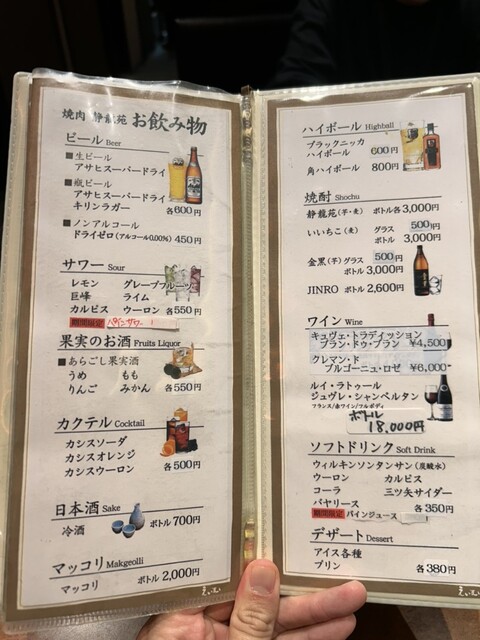 焼肉 静龍苑 お飲み物
ビール Beer
■生ビール
アサヒスーパードライ
■瓶ビール
アサヒスーパードライ
キリンラガー 各600円
■ノンアルコール
ドライゼロ(アルコール0.00%) 450円
サワー Sour
レモン グレープフルーツ
巨峰 ライム
カルピス ウーロン 各550円
期間限定 パインサワー！
果実のお酒 Fruits Liquor
■あらごし果実酒
うめ もも
りんご みかん 各550円
カクテル Cocktail
カシスソーダ
カシスオレンジ
カシスウーロン 各500円
日本酒 Sake
冷酒 ボトル 700円
マッコリ Makgeolli
マッコリ ボトル 2,000円
ハイボール Highball
ブラックニッカ
ハイボール 600円
角ハイボール 800円
焼酎 Shochu
静龍苑(芋・麦) ボトル各3,000円
いいちこ(麦) グラス 500円
ボトル 3,000円
金黒(芋) グラス 500円
ボトル 3,000円
JINRO ボトル 2,600円
ワイン Wine
キュヴェ・トラディッション
ブラン・ドゥ・ブラン ¥4,500
クレマン・ド
ブルゴーニュ・ロゼ ¥6,000
ルイ・ラトゥール
ジュヴレ・シャンベルタン
フランス/赤ワイン/フルボディ
ボトル 18,000円
ソフトドリンク Soft Drink
ウィルキンソンタンサン(炭酸水)
ウーロン カルピス
コーラ 三ツ矢サイダー
バヤリース 各350円
期間限定 パインジュース
デザート Dessert
アイス各種
プリン 各380円